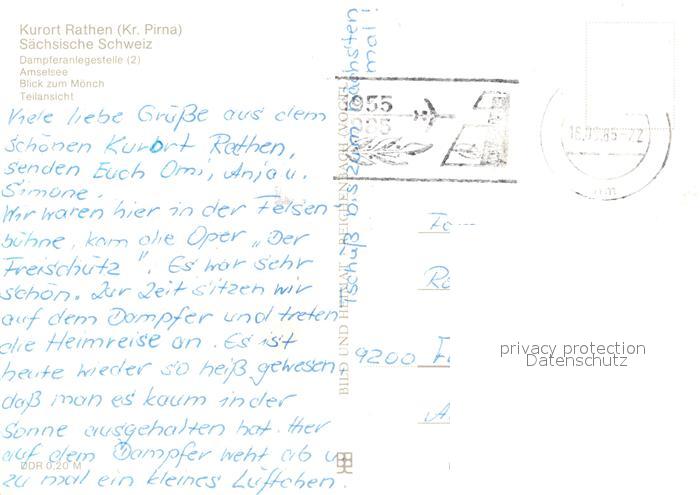 Kurort Rathen (Kr. Pirna)
Sächsische Schweiz
Dampferanlegestelle (2)
Amselsee
Blick zum Mönch
Teilansicht
Viele liebe Grüße aus dem
schönen Kurort Rathen,
senden Euch Omi, Anja u.
Simone.
Wir waren hier in der Felsen
bühne, kam die Oper „Der
Freischütz". Es war sehr
schön. Zur Zeit sitzen wir
auf dem Dampfer und treten
die Heimreise an. Es ist
heute wieder so heiß gewesen,
daß man es kaum in der
Sonne ausgehalten hat. Hier
auf dem Dampfer weht ab u
zu mal ein kleines Lüftchen.
DDR 0,20 M
Tschüß bis zum nächsten
mal!
BILD UND HEIMAT REICHENBACH (VOGTL
1955
1985
9200
privacy protection
Datenschutz